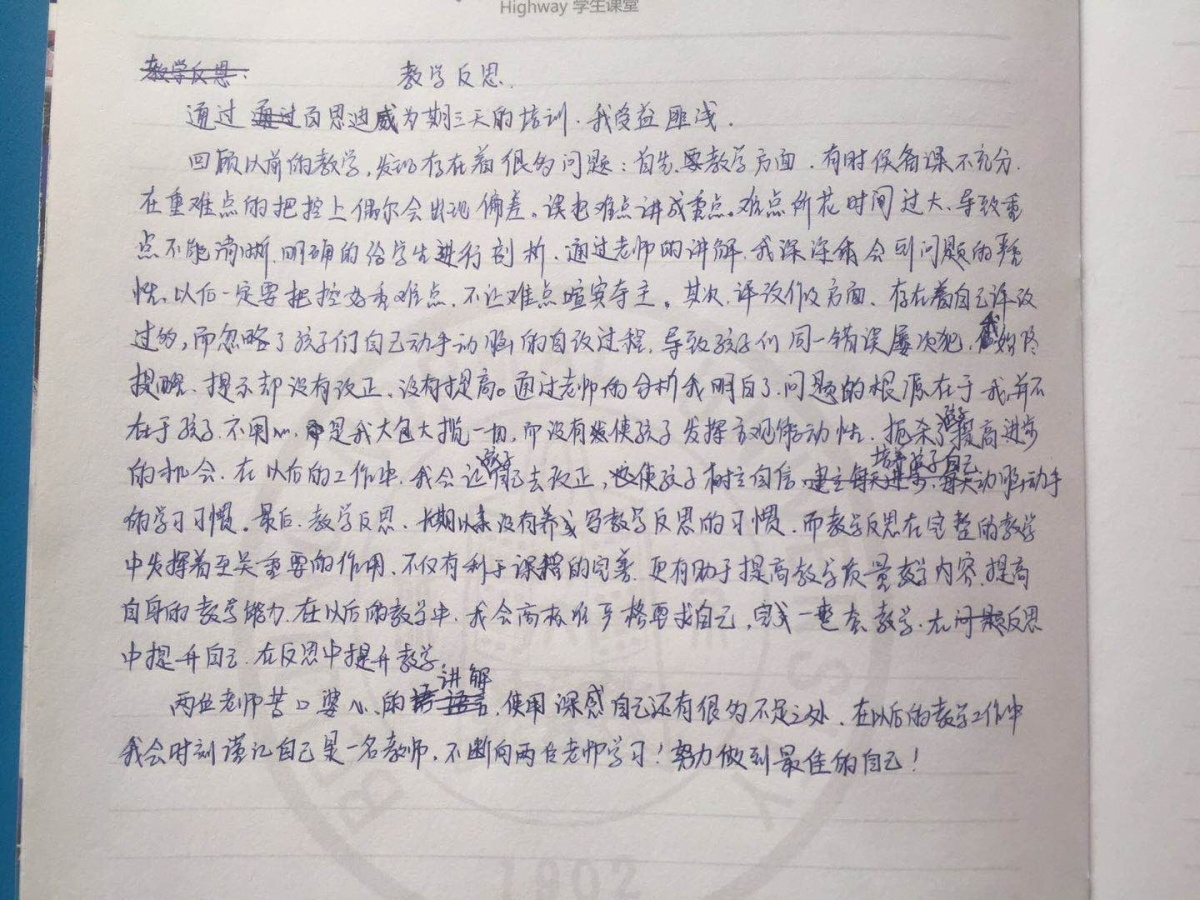 Highway 学生课堂
教学反思: 教学反思.
通过通过百思迪威为期三天的培训.我受益匪浅.
回顾以前的教学,发现存在着很多问题:首先,要教学方面.有时候备课不充分.
在重难点的把控上偶尔会出现偏差。误把难点讲成重点。难点所花时间过大、导致重
点不能清晰.明确的给学生进行剖析.通过老师的讲解.我深深体会到问题的严重
性.以后一定要把控好重难点.不让难点喧宾夺主。其次.评改作文方面、存在着自己评改
过的,而忽略了孩子们自己动手动脑的自改过程.导致孩子们同一错误屡次犯,我始终
提醒.提示却没有改正、没有提高。通过老师的分析我明白了.问题的根源在于我,并不
在于孩子.不用心.而是我大包大揽一切.而没有使孩子发挥主观能动性.扼杀了孩子提高进步
的机会.在以后的工作中.我会让孩子去改正,使孩子树立自信.培养孩子自己动脑动手
的学习习惯。最后.教学反思.长期以来没有养成写教学反思的习惯.而教学反思在完整的教学
中发挥着至关重要的作用.不仅有利于课程的完善.更有助于提高教学质量教学内容.提高
自身的教学能力.在以后的教学中.我会高标准严格要求自己,完成一整套教学.在问题反思
中提升自己.在反思中提升教学.
两位老师苦口婆心的讲解.使用深感自己还有很多不足之处.在以后的教学工作中
我会时刻谨记自己是一名教师,不断向两位老师学习!努力做到最佳的自己!
1902